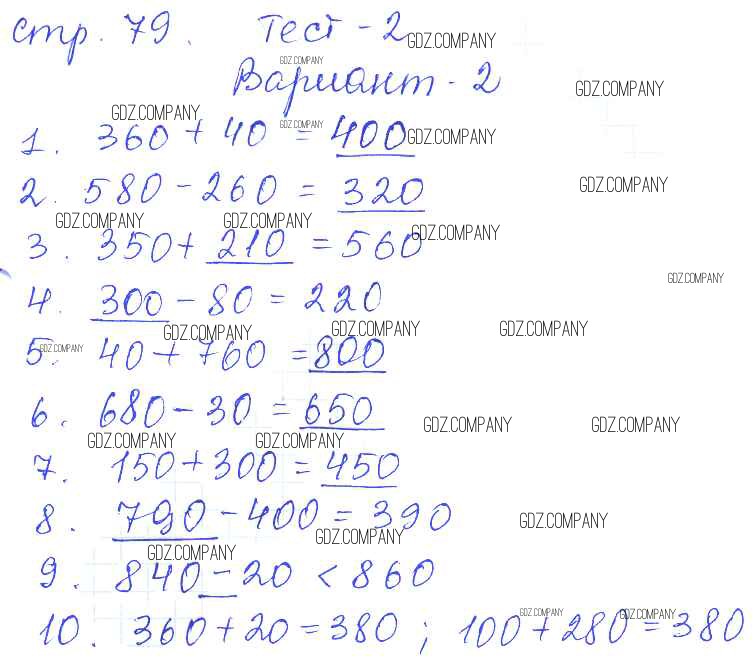 стр. 79. Тест - 2
GDZ.COMPANY
GDZ.COMPANY
Вариант - 2
GDZ.COMPANY
GDZ.COMPANY
1. 360 + 40 = 400
GDZ.COMPANY
GDZ.COMPANY
2. 580 - 260 = 320
GDZ.COMPANY
GDZ.COMPANY GDZ.COMPANY
3. 350 + 210 = 560
GDZ.COMPANY
GDZ.COMPANY
4. 300 - 80 = 220
GDZ.COMPANY GDZ.COMPANY GDZ.COMPANY
5. 40 + 760 = 800
GDZ.COMPANY
6. 680 - 30 = 650
GDZ.COMPANY GDZ.COMPANY
GDZ.COMPANY GDZ.COMPANY
7. 150 + 300 = 450
8. 790 - 400 = 390
GDZ.COMPANY
GDZ.COMPANY
GDZ.COMPANY
9. 840 - 20 < 860
GDZ.COMPANY GDZ.COMPANY
10. 360 + 20 = 380 ; 100 + 280 = 380